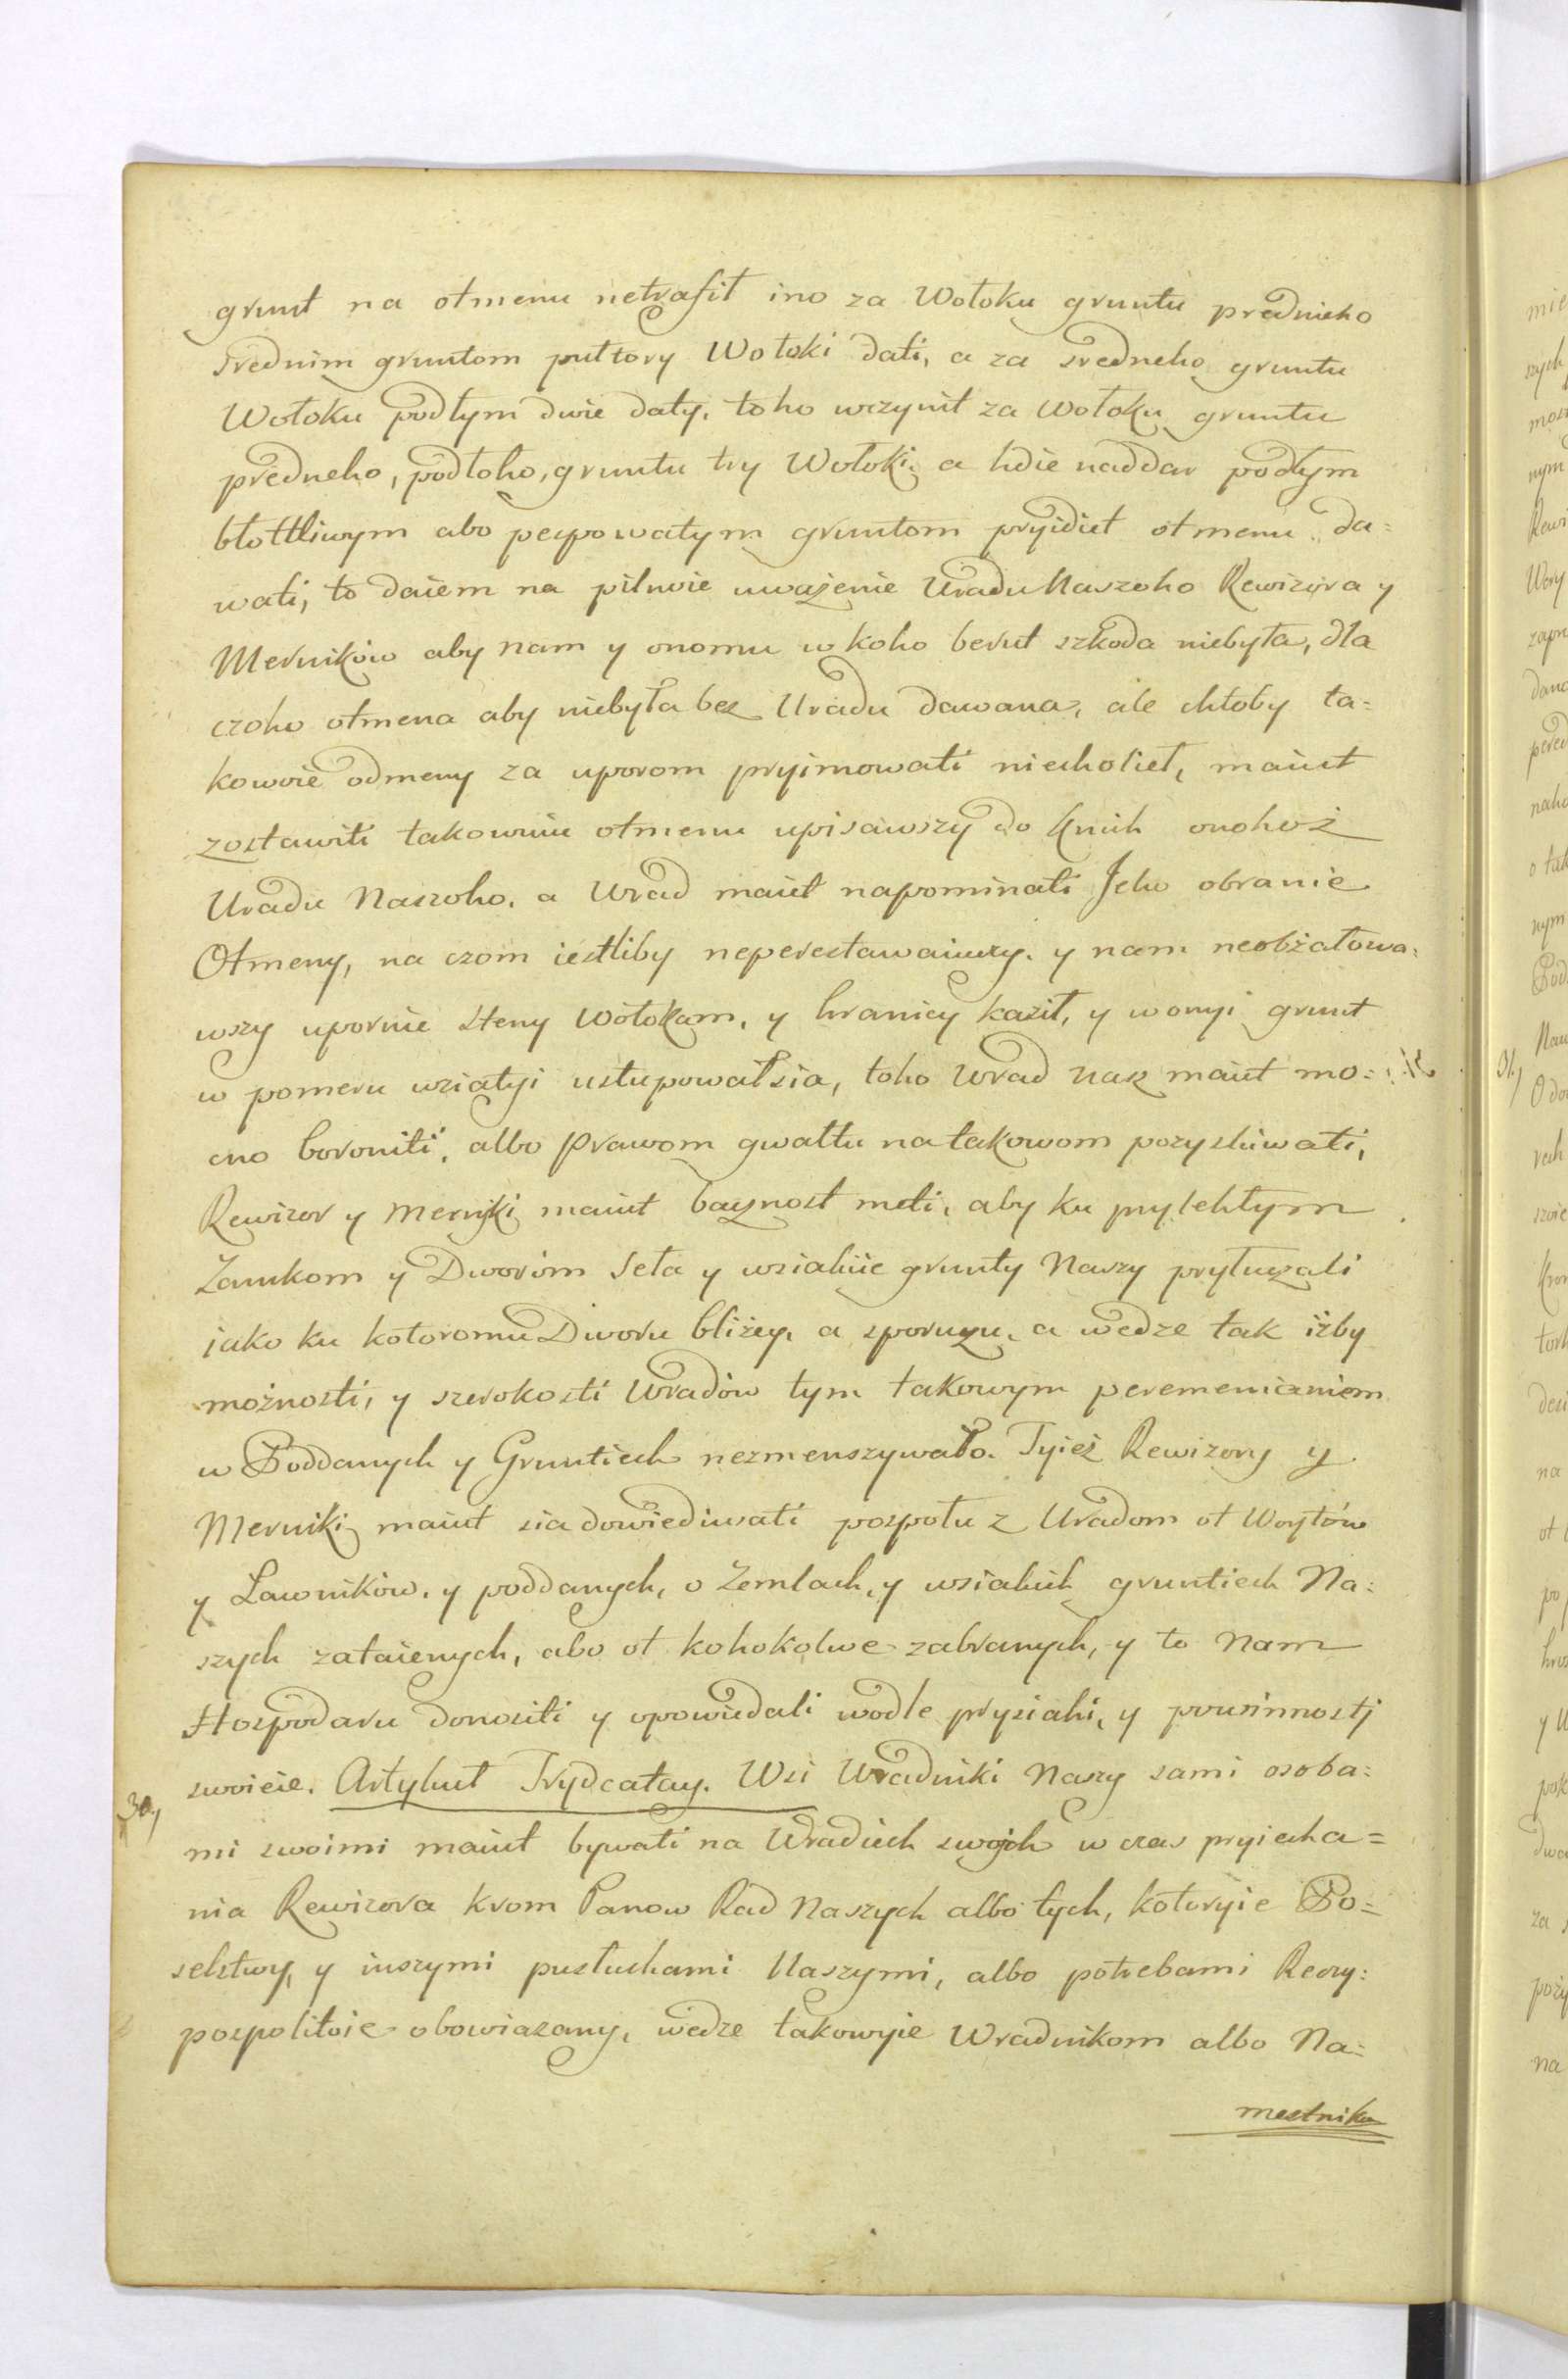 grunt na otmenu netrafit ino za Wołoku gruntu prednieho
srednim gruntom pułtory Wołoki dati, a za sredneho gruntu
Wołoku podłym dwie daty, toho wczynit za Wołoku gruntu
predneho, podłoho, gruntu try Wołoki, a hdie naddar podłym
błottliwym abo pespowatym gruntom pryidiet otmenu da=
wati, to daiem na pilnoie uważenie Uradu Naszoho Rewizora y
Merników aby nam y onomu u koho berut szkoda niebyła, dla
czoho otmena aby niebyła bez Uradu dawana, ale chtoby ta=
kowoie odmeny za uporom pryimowati niechotiet, maiut
zostawiti takowuiu otmenu upisawszy do Knih onohoż
Uradu Naszoho, a Urad maiet napominati Jeho obranie
Otmeny, na czom iestliby neperestawaiuczy, y nam neobżałowa=
wszy upornie steny Wołokam, y hranicy kazit, y wonyi grunt
w pomeru wziatyi ustupowałsia, toho Urad nasz maiet mo=
cno boroniti, albo Prawom gwałtu na takowom pozyskiwati,
Rewizor y Merniki maiut bacznost meti, aby ku prylehłym
Zamkom y Dworóm Seła y wsiakiie grunty Naszy pryłuczali
jako ku kotoromu Dworu bliżey, a sporuczu, a wedże tak iżby
możnosti, y szerokosti Uradów tym takowym peremenieniem
w Poddanych y Gruntiech nezmenszywało. Tyież Rewizory y
Merniki maiut sia dowiediwati pospołu z Uradom ot Woytów
y Ławników, y poddanych, o Zemlach, y wsiakich gruntiech Na=
szych zataienych, abo ot kohokolwe zabranych, y to Nam
Hospodaru donositi y opowiedali wodle prysiahi, y powinnosty
swoieie. Artykuł Trydcatay. Wsi Uradniki Naszy sami osoba=
30,
mi swoimi maiut bywati na Uradiech swoich w czas pryiecha=
nia Rewizora krom Panow Rad Naszych albo tych, kotoryie Po=
selstwy, y inszymi posłuhami Naszymi, albo potrebami Reczy=
pospolitoie obowiazany, wedże takowyie Uradnikom albo Na=
mestnika